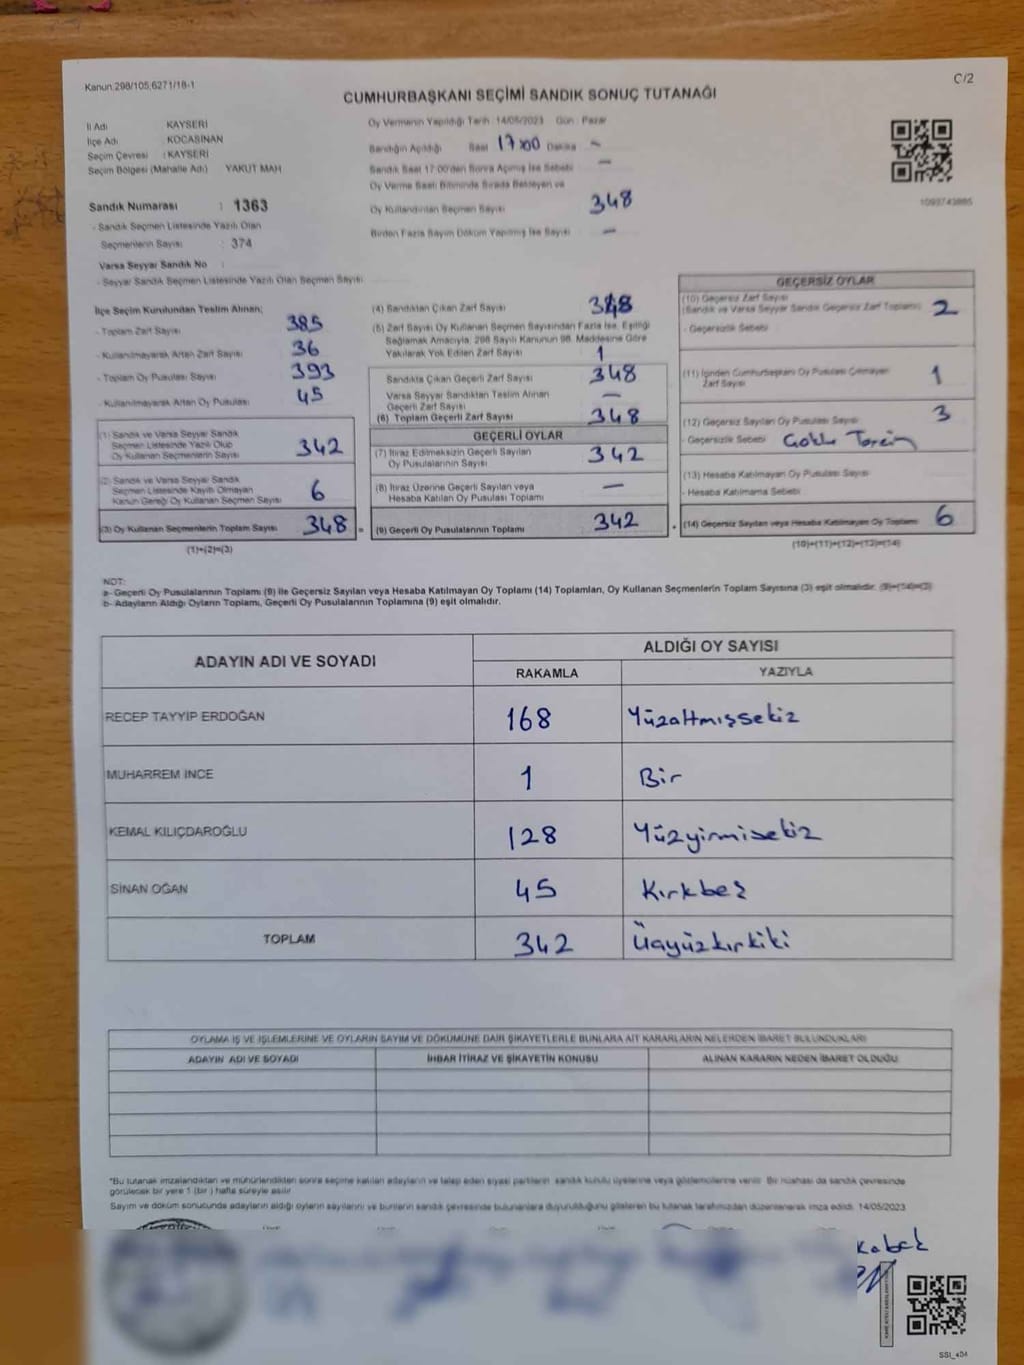 Kanun:298/105,6271/18-1
C/2
CUMHURBAŞKANI SEÇİMİ SANDIK SONUÇ TUTANAĞI
İl Adı KAYSERİ
İlçe Adı : KOCASİNAN
Seçim Çevresi : KAYSERİ
Seçim Bölgesi (Mahalle Adı) YAKUT MAH
Sandık Numarası : 1363
- Sandık Seçmen Listesinde Yazılı Olan
Seçmenlerin Sayısı : 374
Varsa Seyyar Sandık No :
- Seyyar Sandık Seçmen Listesinde Yazılı Olan Seçmen Sayısı
Oy Vermenin Yapıldığı Tarih :14/05/2023 Gün : Pazar
Sandığın Açıldığı Saat 17:00 Dakika –
Sandık Saat 17:00'den Sonra Açılmış İse Sebebi –
Oy Verme Saati Bitiminde Sırada Bekleyen ve
Oy Kullandırılan Seçmen Sayısı 348
Birden Fazla Sayım Döküm Yapılmış İse Sayısı –
1093743885
İlçe Seçim Kurulundan Teslim Alınan;
- Toplam Zarf Sayısı 385
- Kullanılmayarak Artan Zarf Sayısı 36
- Toplam Oy Pusulası Sayısı 393
- Kullanılmayarak Artan Oy Pusulası 45
(1) Sandık ve Varsa Seyyar Sandık
Seçmen Listesinde Yazılı Olup
Oy Kullanan Seçmenlerin Sayısı 342
(2) Sandık ve Varsa Seyyar Sandık
Seçmen Listesinde Kayıtlı Olmayan
Kanun Gereği Oy Kullanan Seçmen Sayısı 6
(3) Oy Kullanan Seçmenlerin Toplam Sayısı 348 =
(1)+(2)=(3)
(4) Sandıktan Çıkan Zarf Sayısı 348
(5) Zarf Sayısı Oy Kullanan Seçmen Sayısından Fazla İse, Eşitliği
Sağlamak Amacıyla, 298 Sayılı Kanunun 98. Maddesine Göre
Yakılarak Yok Edilen Zarf Sayısı 1
Sandıkta Çıkan Geçerli Zarf Sayısı 348
Varsa Seyyar Sandıktan Teslim Alınan
Geçerli Zarf Sayısı –
(6) Toplam Geçerli Zarf Sayısı 348
GEÇERLİ OYLAR
(7) İtiraz Edilmeksizin Geçerli Sayılan
Oy Pusulalarının Sayısı 342
(8) İtiraz Üzerine Geçerli Sayılan veya
Hesaba Katılan Oy Pusulası Toplamı –
(9) Geçerli Oy Pusulalarının Toplamı 342 +
GEÇERSİZ OYLAR
(10) Geçersiz Zarf Sayısı
(Sandık ve Varsa Seyyar Sandık Geçersiz Zarf Toplamı) 2
- Geçersizlik Sebebi
(11) İçinden Cumhurbaşkanı Oy Pusulası Çıkmayan
Zarf Sayısı 1
(12) Geçersiz Sayılan Oy Pusulası Sayısı 3
- Geçersizlik Sebebi Çoklu Tercih
(13) Hesaba Katılmayan Oy Pusulası Sayısı
- Hesaba Katılmama Sebebi
(14) Geçersiz Sayılan veya Hesaba Katılmayan Oy Toplamı 6
(10)+(11)+(12)+(13)=(14)
NOT:
a- Geçerli Oy Pusulasının Toplamı (9) ile Geçersiz Sayılan veya Hesaba Katılmayan Oy Toplamı (14) Toplamları, Oy Kullanan Seçmenlerin Toplam Sayısına (3) eşit olmalıdır. (9)+(14)=(3)
b- Adayların Aldığı Oyların Toplamı, Geçerli Oy Pusulalarının Toplamına (9) eşit olmalıdır.
ADAYIN ADI VE SOYADI
ALDIĞI OY SAYISI
RAKAMLA YAZIYLA
RECEP TAYYİP ERDOĞAN 168 Yüzaltmışsekiz
MUHARREM İNCE 1 Bir
KEMAL KILIÇDAROĞLU 128 Yüzyirmisekiz
SİNAN OĞAN 45 Kırkbeş
TOPLAM 342 Üçyüzkırkiki
OYLAMA İŞ VE İŞLEMLERİNE VE OYLARIN SAYIM VE DÖKÜMÜNE DAİR ŞİKAYETLERLE BUNLARA AİT KARARLARIN NELERDEN İBARET BULUNDUKLARI
ADAYIN ADI VE SOYADI İHBAR İTİRAZ VE ŞİKAYETİN KONUSU ALINAN KARARIN NEDEN İBARET OLDUĞU
*Bu tutanak imzalandıktan ve mühürlendikten sonra seçime katılan adayların ve talep eden siyasi partilerin sandık kurulu üyelerine veya gözlemcilerine verilir. Bir nüshası da sandık çevresinde
görülecek bir yere 1 (bir) hafta süreyle asılır.
Sayım ve döküm sonucunda adayların aldığı oyların sayılarını ve bunların sandık çevresinde bulunanlara duyurulduğunu gösteren bu tutanak tarafımızdan düzenlenerek imza edildi. 14/05/2023
SSI_404